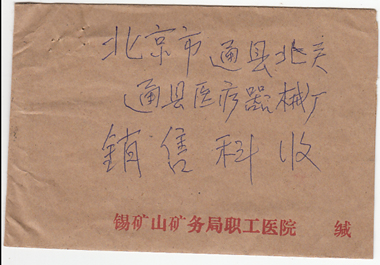 北京市通县北关
通县医疗器械厂
销售科收
锡矿山矿务局职工医院 缄